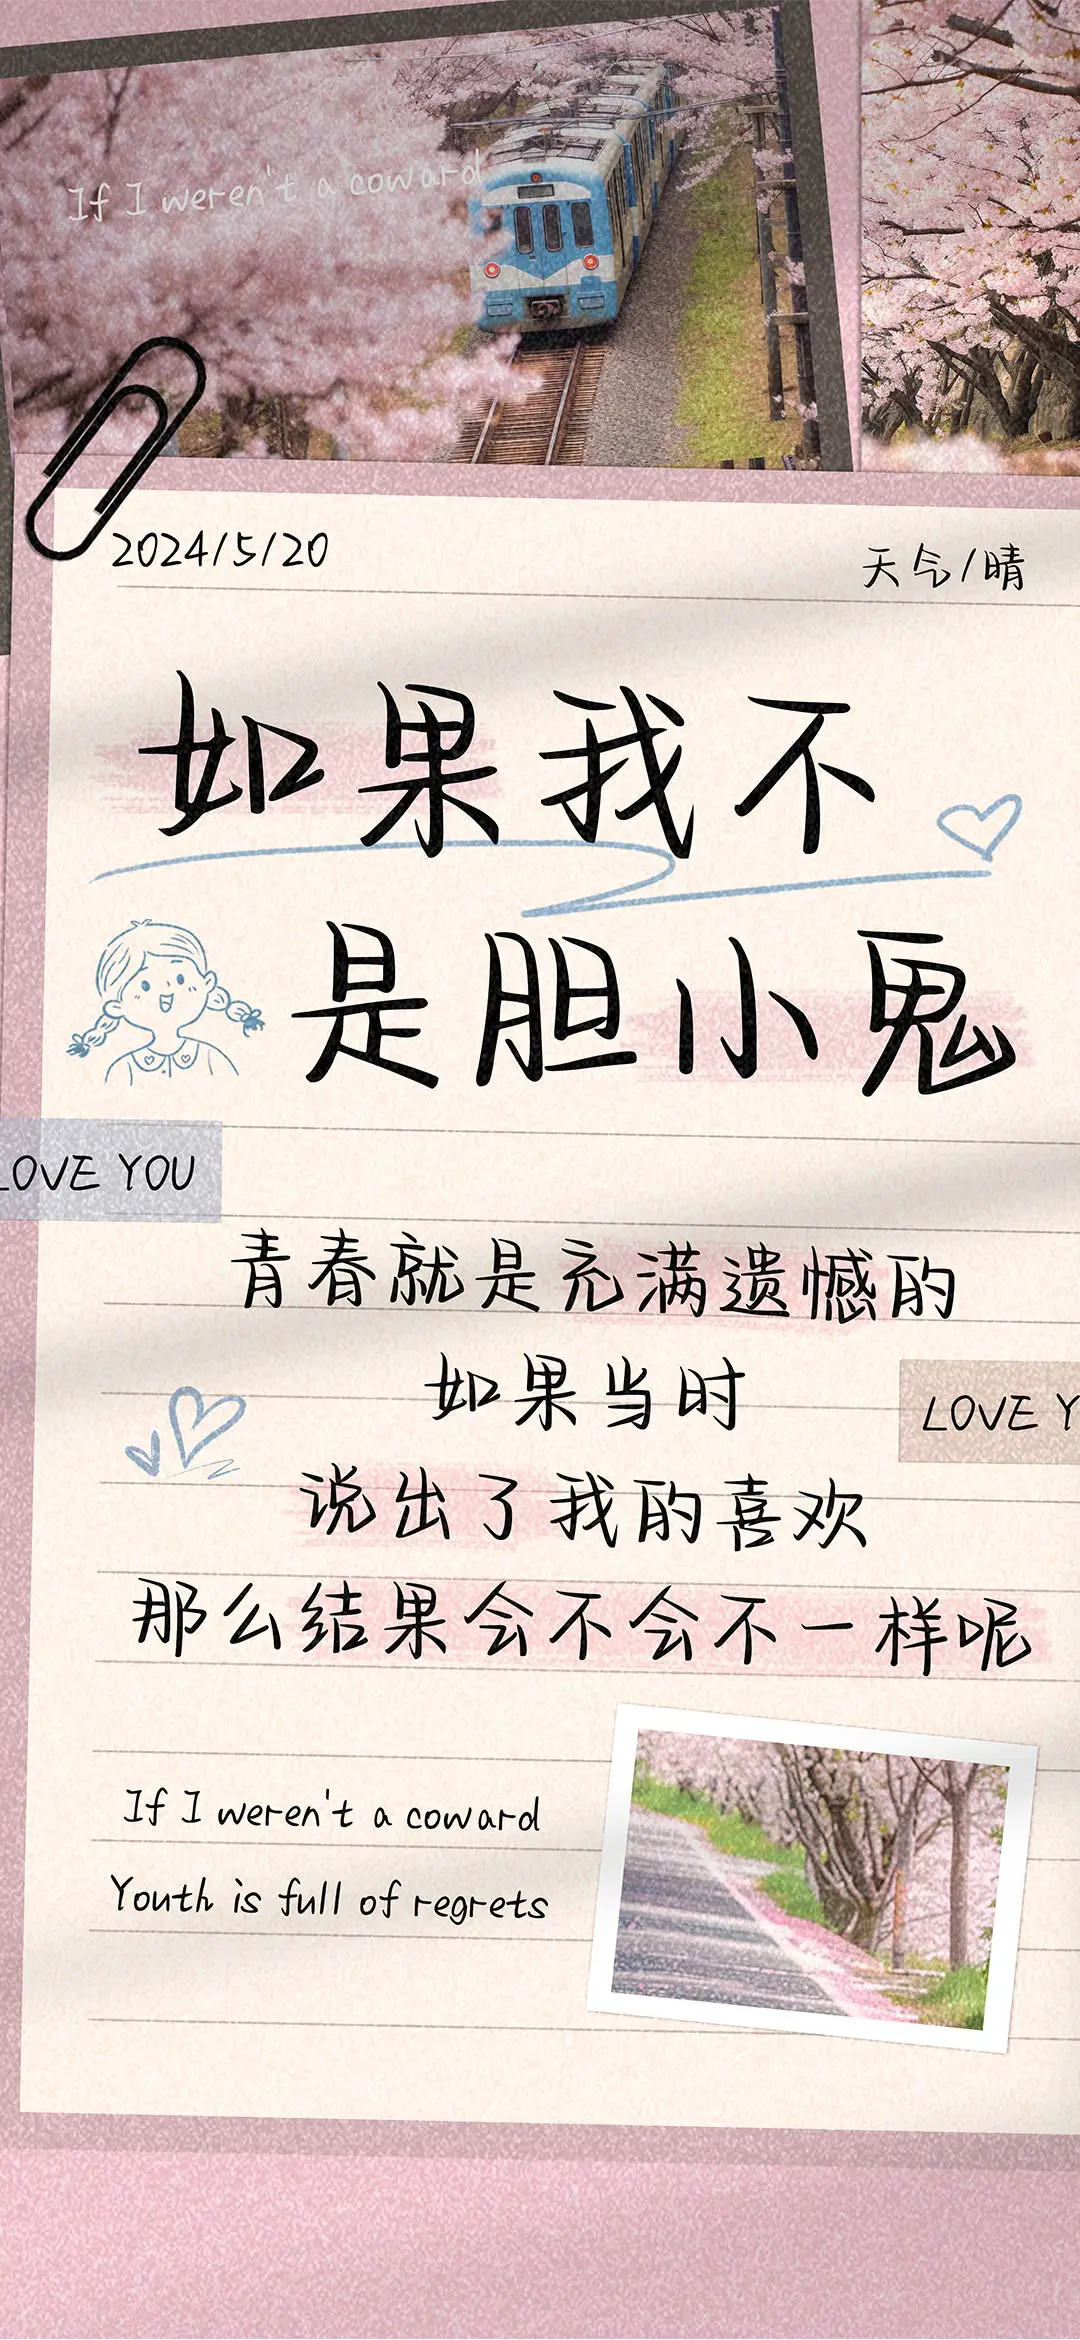 If I weren't a coward
2024/5/20
天气/晴
如果我不
是胆小鬼
LOVE YOU
青春就是充满遗憾的
如果当时
LOVE Y
说出了我的喜欢
那么结果会不会不一样呢
If I weren't a coward
Youth is full of regrets